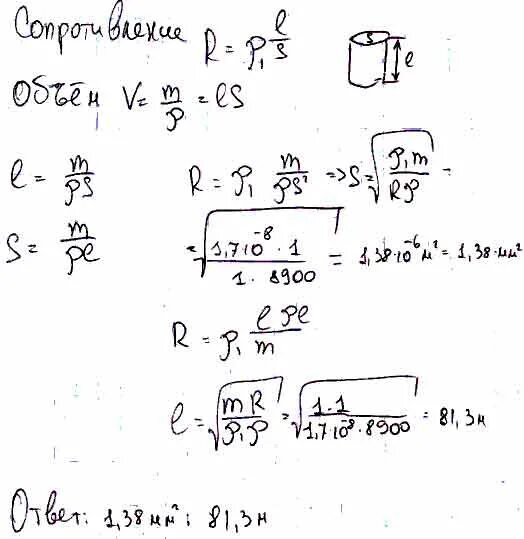 Сопротивление R = ρ₁ l/S
S l
Объём V = m/ρ = lS
l = m/ρS R = ρ₁ m/ρS² => S = √(ρ₁m/Rρ) =
S = m/ρl = √(1,7·10⁻⁸·1/1·8900) = 1,38·10⁻⁶ м² = 1,38·мм²
R = ρ₁ lρl/m
l = √(mR/ρ₁ρ) = √(1·1/1,7·10⁻⁸·8900) = 81,3м
Ответ: 1,38 мм²; 81,3м